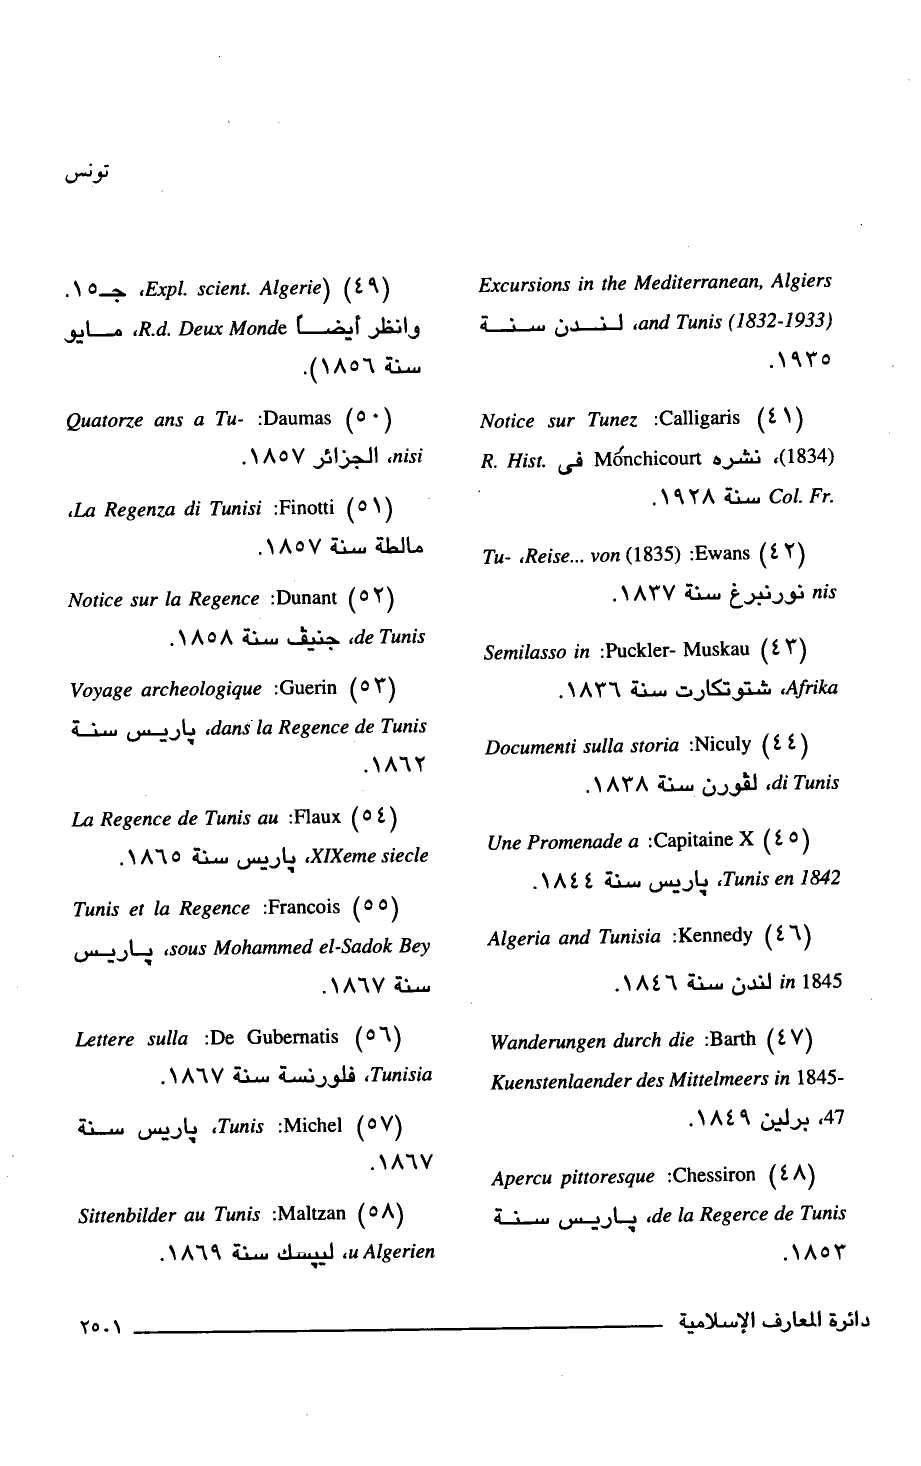 تونس
Excursions in the Mediterranean, Algiers
and Tunis (1832-1933)، لندن سنة
١٩٣٥.
(٤١) Calligaris: Notice sur Tunez
(1834)، نشره Mónchicourt فى R. Hist.
Col. Fr. سنة ١٩٢٨.
(٤٢) Ewans: (1835) Reise... von، Tu-
nis نورنبرغ سنة ١٨٣٧.
(٤٣) Puckler- Muskau: Semilasso in
Afrika، شتوتكارت سنة ١٨٣٦.
(٤٤) Niculy: Documenti sulla storia
di Tunis، لڤورن سنة ١٨٣٨.
(٤٥) Capitaine X: Une Promenade a
Tunis en 1842، پاريس سنة ١٨٤٤.
(٤٦) Kennedy: Algeria and Tunisia
in 1845 لندن سنة ١٨٤٦.
(٤٧) Barth: Wanderungen durch die
Kuenstenlaender des Mittelmeers in 1845-
47، برلين ١٨٤٩.
(٤٨) Chessiron: Apercu pittoresque
de la Regerce de Tunis، پاريس سنة
١٨٥٣.
(٤٩) (Expl. scient. Algerie، جـ١٥.
وانظر أيضاً R.d. Deux Monde، مايو
سنة ١٨٥٦).
(٥٠) Daumas: Quatorze ans a Tu-
nisi، الجزائر ١٨٥٧.
(٥١) Finotti: La Regenza di Tunisi،
مالطة سنة ١٨٥٧.
(٥٢) Dunant: Notice sur la Regence
de Tunis، جنيڤ سنة ١٨٥٨.
(٥٣) Guerin: Voyage archeologique
dans la Regence de Tunis، پاريس سنة
١٨٦٢.
(٥٤) Flaux: La Regence de Tunis au
XIXeme siecle، پاريس سنة ١٨٦٥.
(٥٥) Francois: Tunis et la Regence
sous Mohammed el-Sadok Bey، پاريس
سنة ١٨٦٧.
(٥٦) De Gubernatis: Lettere sulla
Tunisia، فلورنسة سنة ١٨٦٧.
(٥٧) Michel: Tunis، پاريس سنة
١٨٦٧.
(٥٨) Maltzan: Sittenbilder au Tunis
u Algerien، ليپسك سنة ١٨٦٩.
دائرة المعارف الإسلامية ٢٥٠١